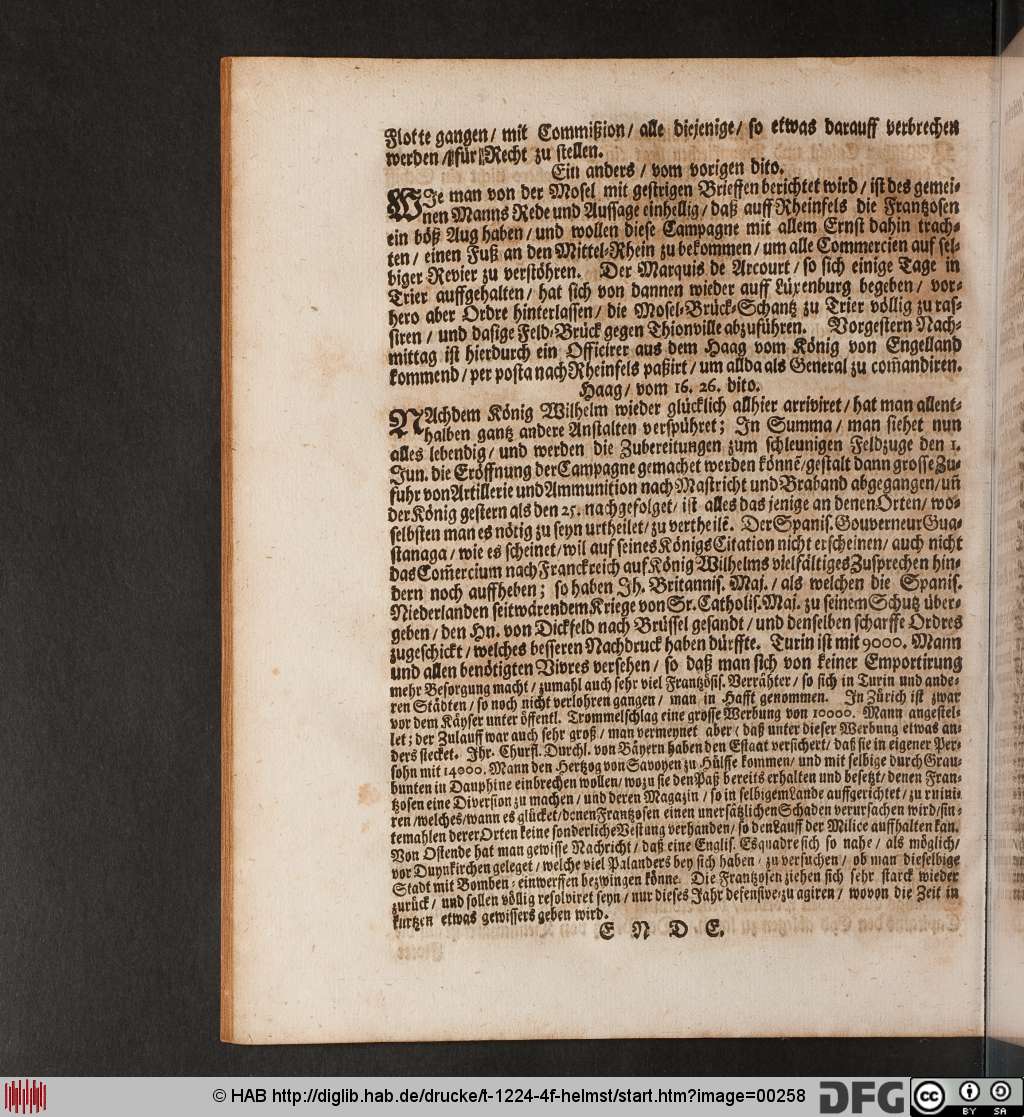 Flotte gangen / mit Commißion / alle diejenige / so etwas darauff verbrechen
werden / für Recht zu stellen.
Ein anders / vom vorigen dito.
WJe man von der Mosel mit gestrigen Brieffen berichtet wird / ist des gemei-
nen Manns Rede und Aussage einhellig / daß auff Rheinfels die Frantzosen
ein böß Aug haben / und wollen diese Campagne mit allem Ernst dahin trach-
ten / einen Fuß an den Mittel-Rhein zu bekommen / um alle Commercien auf sel-
biger Revier zu verstöhren. Der Marquis de Arcourt / so sich einige Tage in
Trier auffgehalten / hat sich von dannen wieder auff Lüxenburg begeben / vor-
hero aber Ordre hinterlassen / die Mosel-Brück-Schantz zu Trier völlig zu ras-
siren / und dasige Feld-Brück gegen Thionville abzuführen. Vorgestern Nach-
mittag ist hierdurch ein Officirer aus dem Haag vom König von Engelland
kommend / per posta nach Rheinfels paßirt / um allda als General zu com̃andiren.
Haag / vom 16. 26. dito.
NAchdem König Wilhelm wieder glücklich allhier arriviret / hat man allent-
halben gantz andere Anstalten verspühret; Jn Summa / man siehet nun
alles lebendig / und werden die Zubereitungen zum schleunigen Feldzuge den 1.
Jun. die Eröffnung der Campagne gemachet werden könnẽ / gestalt dann grosse Zu-
fuhr von Artillerie und Ammunition nach Mastricht und Braband abgegangen / uñ
der König gestern als den 25. nachgefolget / ist alles das jenige an denen Orten / wo-
selbsten man es nötig zu seyn urtheilet / zu vertheilẽ. Der Spanis. Gouverneur Gua-
stanaga / wie es scheinet / wil auf seines Königs Citation nicht erscheinen / auch nicht
das Com̃ercium nach Franckreich auf König Wilhelms vielfältiges Zusprechen hin-
dern noch auffheben; so haben Jh. Britannis. Maj. / als welchen die Spanis.
Niederlanden seit wärendem Kriege von Sr. Catholis. Maj. zu seinem Schutz über-
geben / den Hn. von Dickfeld nach Brüssel gesandt / und denselben scharffe Ordres
zugeschickt / welches besseren Nachdruck haben dürffte. Turin ist mit 9000. Mann
und allen benötigten Vivres versehen / so daß man sich von keiner Emportirung
mehr Besorgung macht / zumahl auch sehr viel Frantzösis. Verrähter / so sich in Turin und ande-
ren Städten / so noch nicht verlohren gangen / man in Hafft genommen. Jn Zürich ist zwar
vor dem Käyser unter öffentl. Trommelschlag eine grosse Werbung von 10000. Mann angestel-
let; der Zulauff war auch sehr groß / man vermeynet aber / daß unter dieser Werbung etwas an-
ders stecket. Jhr. Churfl. Durchl. von Bäyern haben den Estaat versichert / daß sie in eigener Per-
sohn mit 14000. Mann den Hertzog von Savoyen zu Hülffe kommen / und mit selbige durch Grau-
bunten in Dauphine einbrechen wollen / wozu sie den Paß bereits erhalten und besetzt / denen Fran-
tzosen eine Diversion zu machen / und deren Magazin / so in selbigem Lande auffgerichtet / zu ruini-
ren / welches / wann es glücket / denen Frantzosen einen unersätzlichen Schaden verursachen wird / sin-
temahlen derer Orten keine sonderliche Vestung verhanden / so den Lauff der Milice auffhalten kan.
Von Ostende hat man gewisse Nachricht / daß eine Englis. Esquadre sich so nahe / als möglich /
vor Duynkirchen geleget / welche viel Palanders bey sich haben / zu versuchen / ob man dieselbige
Stadt mit Bomben-einwerffen bezwingen könne. Die Frantzosen ziehen sich sehr starck wieder
zurück / und sollen völlig resolviret seyn / nur dieses Jahr defensive zu agiren / wovon die Zeit in
kurtzen etwas gewissers geben wird.
E N D E.
© HAB http://diglib.hab.de/drucke/t-1224-4f-helmst/start.htm?image=00258
DFG
cc
BY SA